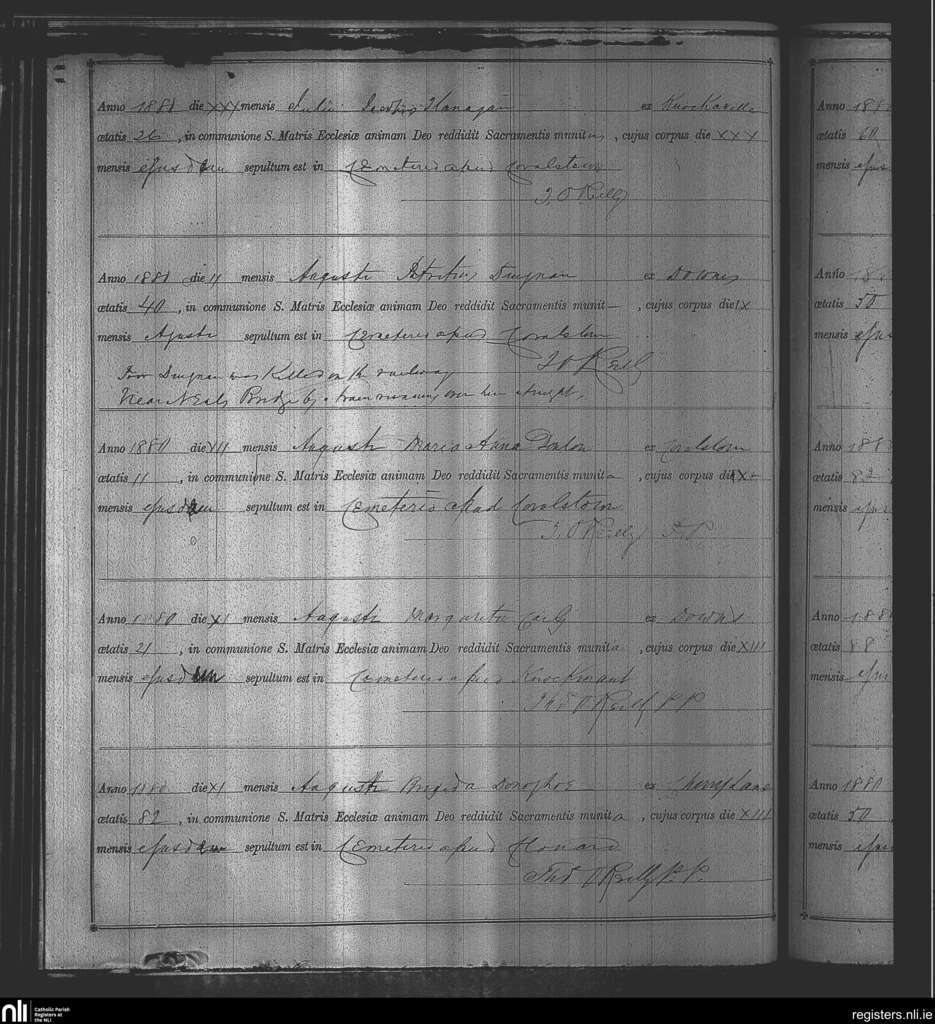 Anno 1880 die XXX mensis Julii Jacobus Flanagan ex Knockaville
ætatis 26, in communione S. Matris Ecclesiæ animam Deo reddidit Sacramentis munitus, cujus corpus die XXX
mensis ejusdem sepultum est in Cemeterio apud Coralstown
T. O Reilly
Anno 1880 die 11 mensis Augusti Patritius Duignan ex Downes
ætatis 40, in communione S. Matris Ecclesiæ animam Deo reddidit Sacramentis munit, cujus corpus die IX
mensis Agusti sepultum est in Cemeterio apud Coralstown
T O Reil
Poor Duignan was Killed on the railway
Near Neals Bridge by a train running over him at night.
Anno 1880 die XII mensis Augusti Maria Anna Dalon ex Coralstown
ætatis 11, in communione S. Matris Ecclesiæ animam Deo reddidit Sacramentis munita, cujus corpus die
mensis ejusdem sepultum est in Cemeterio apud Coralstown
T. O Reilly P. P.
Anno 1880 die XI mensis Augusti Margarita ex Downs
ætatis 21, in communione S. Matris Ecclesiæ animam Deo reddidit Sacramentis munita, cujus corpus die XIII
mensis ejusdem sepultum est in Cemeterio apud Knockmant
Thos O Reilly P. P.
Anno 1880 die XI mensis Augusti Brigida Donophoe ex Thomas Lane
ætatis 82, in communione S. Matris Ecclesiæ animam Deo reddidit Sacramentis munita, cujus corpus die XIII
mensis ejusdem sepultum est in Cemeterio apud Clonard
Thos O Reilly P. P.
Anno 188
ætatis 60
mensis ejus
Anno 188
ætatis 50
mensis ejus
Anno 188
ætatis 82
mensis ejus
Anno 188
ætatis 88
mensis ejus
Anno 1880
ætatis 50
mensis ejus
nli Catholic Parish
Registers at
the NLI
registers.nli.ie